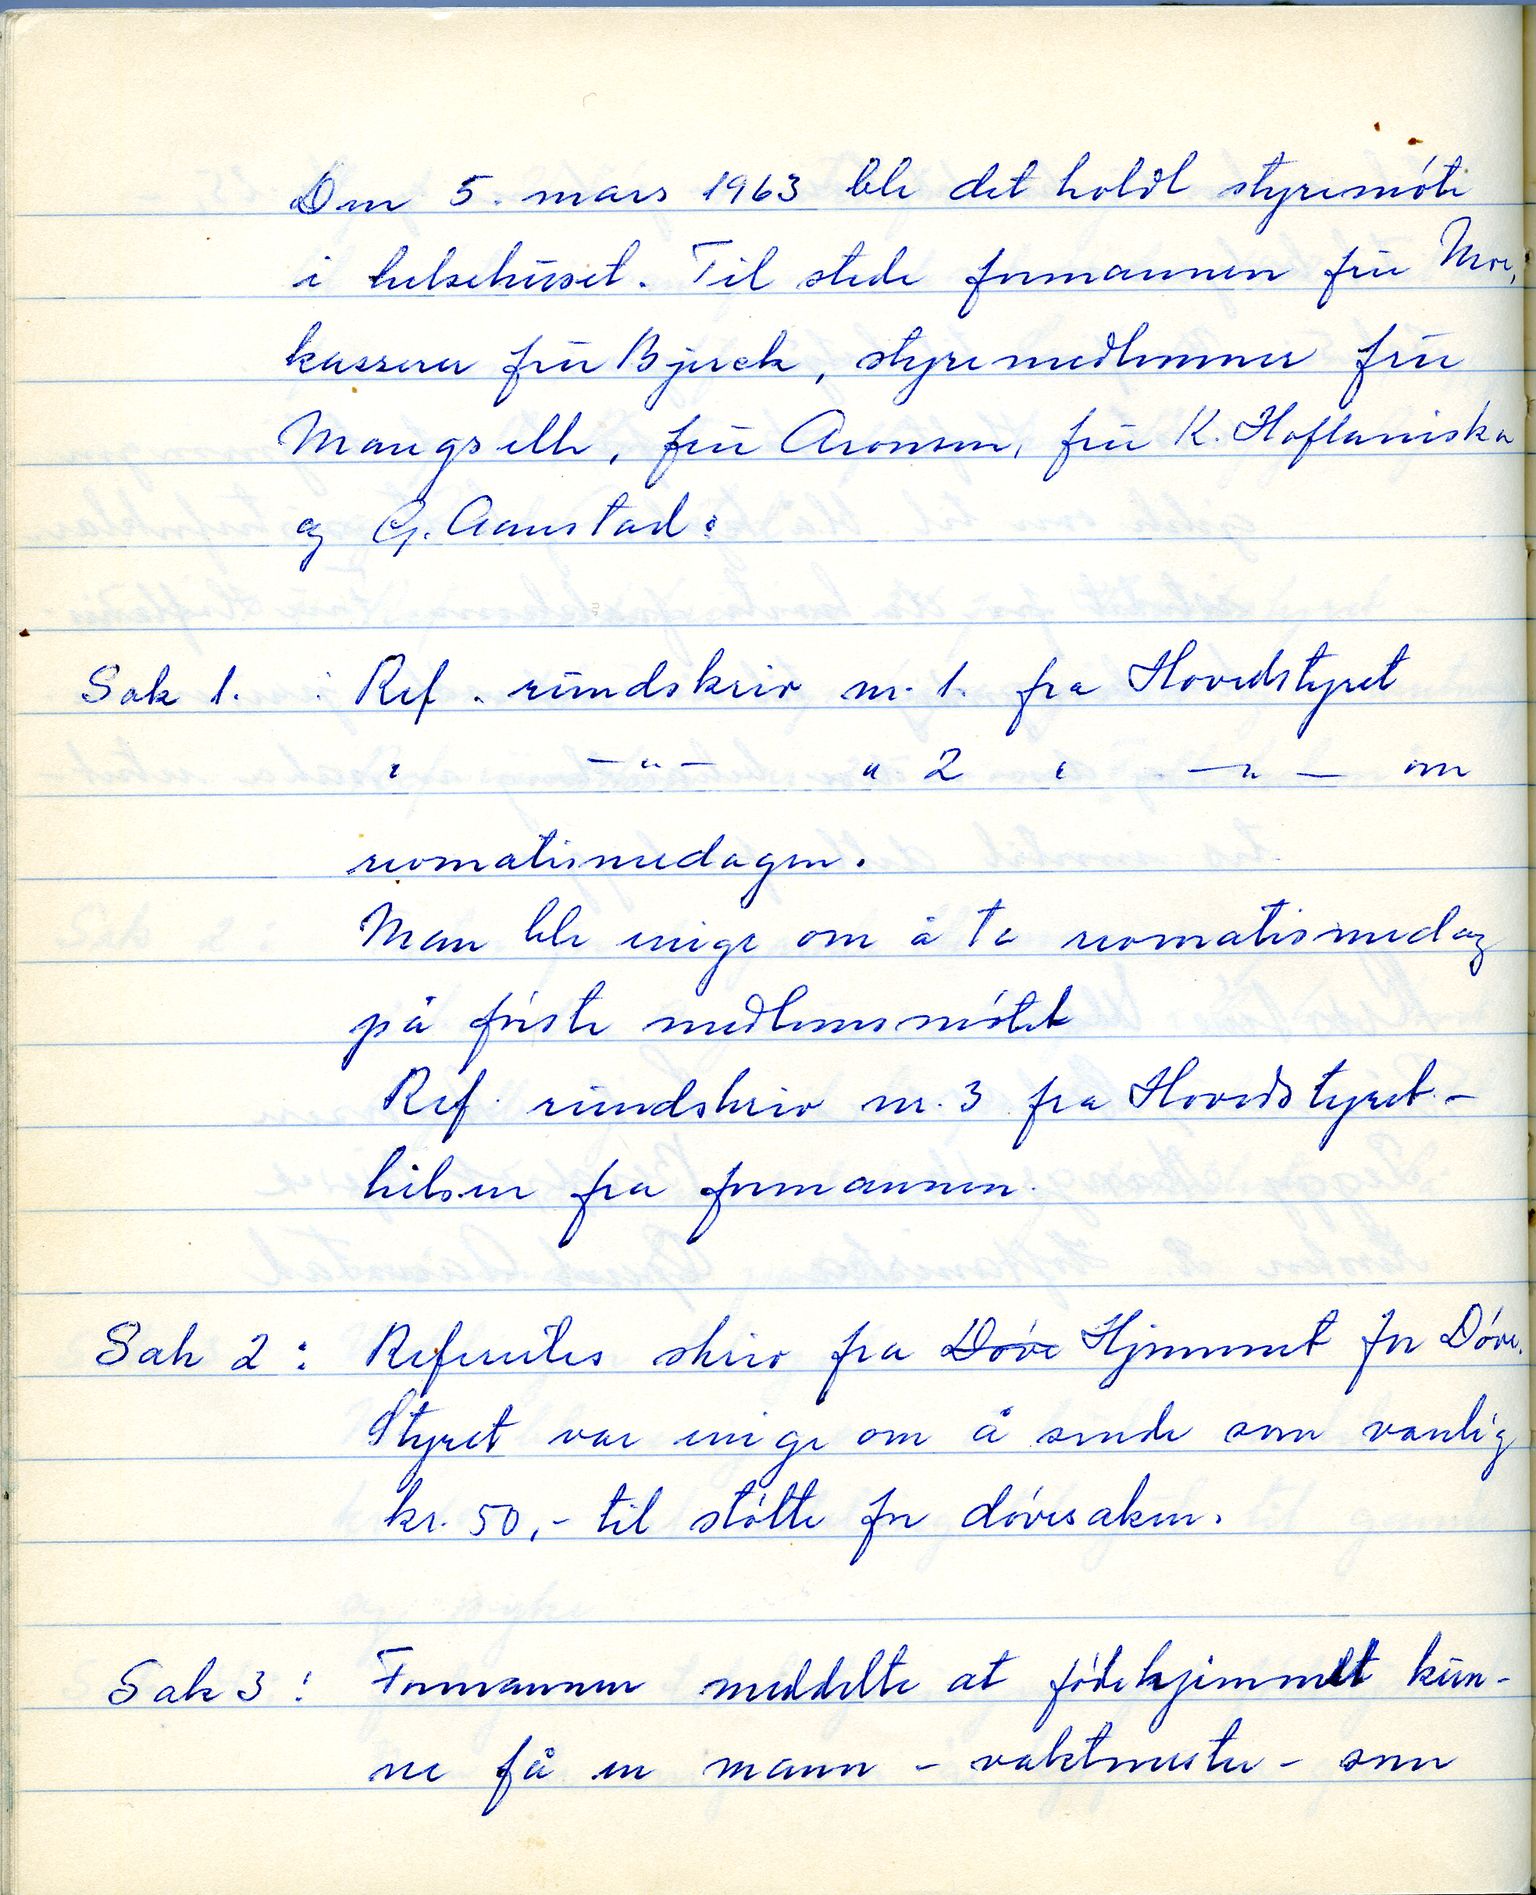 Den 5. mars 1963 ble det holdt styremøte
i helsehuset. Til stede formannen fru Moe,
kasserer fru Bjerck, styremedlemmer fru
Mangselle, fru Aronsen, fru K. Hoflaniska
og G. Aanstad:
Sak 1. : Ref. rundskriv nr. 1. fra Hovedstyret
" — " — " 2 " — " — om
revmatismedagen.
Man ble enige om å ta revmatismedag
på første medlemsmøtet
Ref. rundskriv nr. 3 fra Hovedstyret -
hilsen fra formannen.
Sak 2 : Refereites skriv fra Døve Hjemmet for Døve.
Styret var enige om å sende som vanlig
kr. 50,- til støtte for døvesaken.
Sak 3 : Formannen meddelte at fødehjemmet kun-
ne få en mann - vaktmester - som